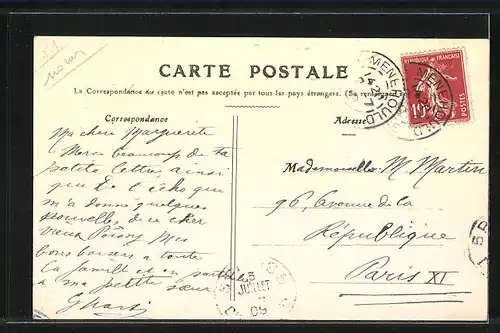 CARTE POSTALE
La Correspondance au recto n'est pas acceptée par tous les pays étrangers. (Se renseigner
Correspondance
Adresse
Ma chère Marguerite
Merci beaucoup de ta
petite lettre, ainsi
que de l'écho qui
m'a donné quelques
nouvelles de ce cher
vieux Poissy Mes
bons baisers à toute
la famille et en
à ma petite sœur
Mademoiselle M Martin
96, Avenue de la
République
Paris XI
REPUBLIQUE FRANCAISE
10
POSTES
MENEHOULD
MENEHOULD
3
JUILLET
09